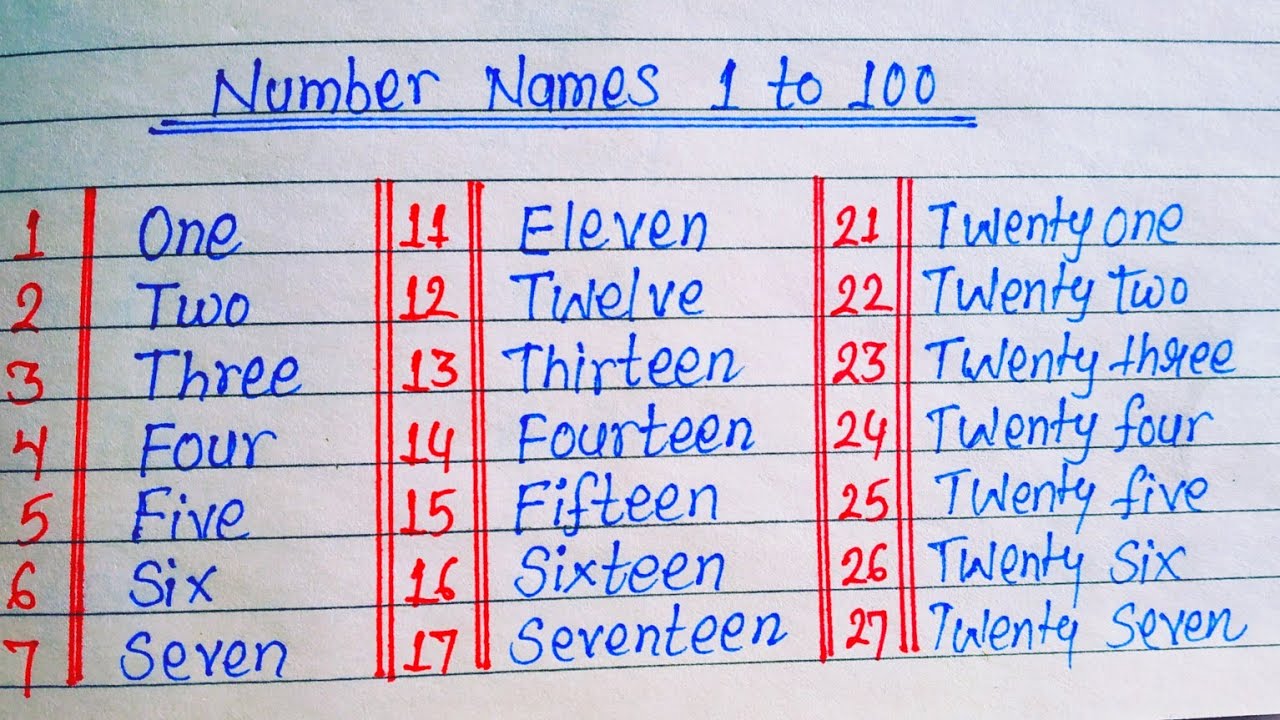 Number Names 1 to 100
1 One 11 Eleven 21 Twenty one
2 Two 12 Twelve 22 Twenty two
3 Three 13 Thirteen 23 Twenty three
4 Four 14 Fourteen 24 Twenty four
5 Five 15 Fifteen 25 Twenty five
6 Six 16 Sixteen 26 Twenty Six
7 Seven 17 Seventeen 27 Twenty Seven